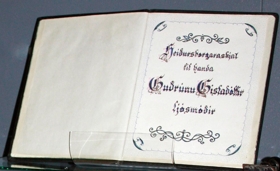 Heiðursborgarabréf
til handa
Guðrúnu Gísladóttir
ljósmóðir